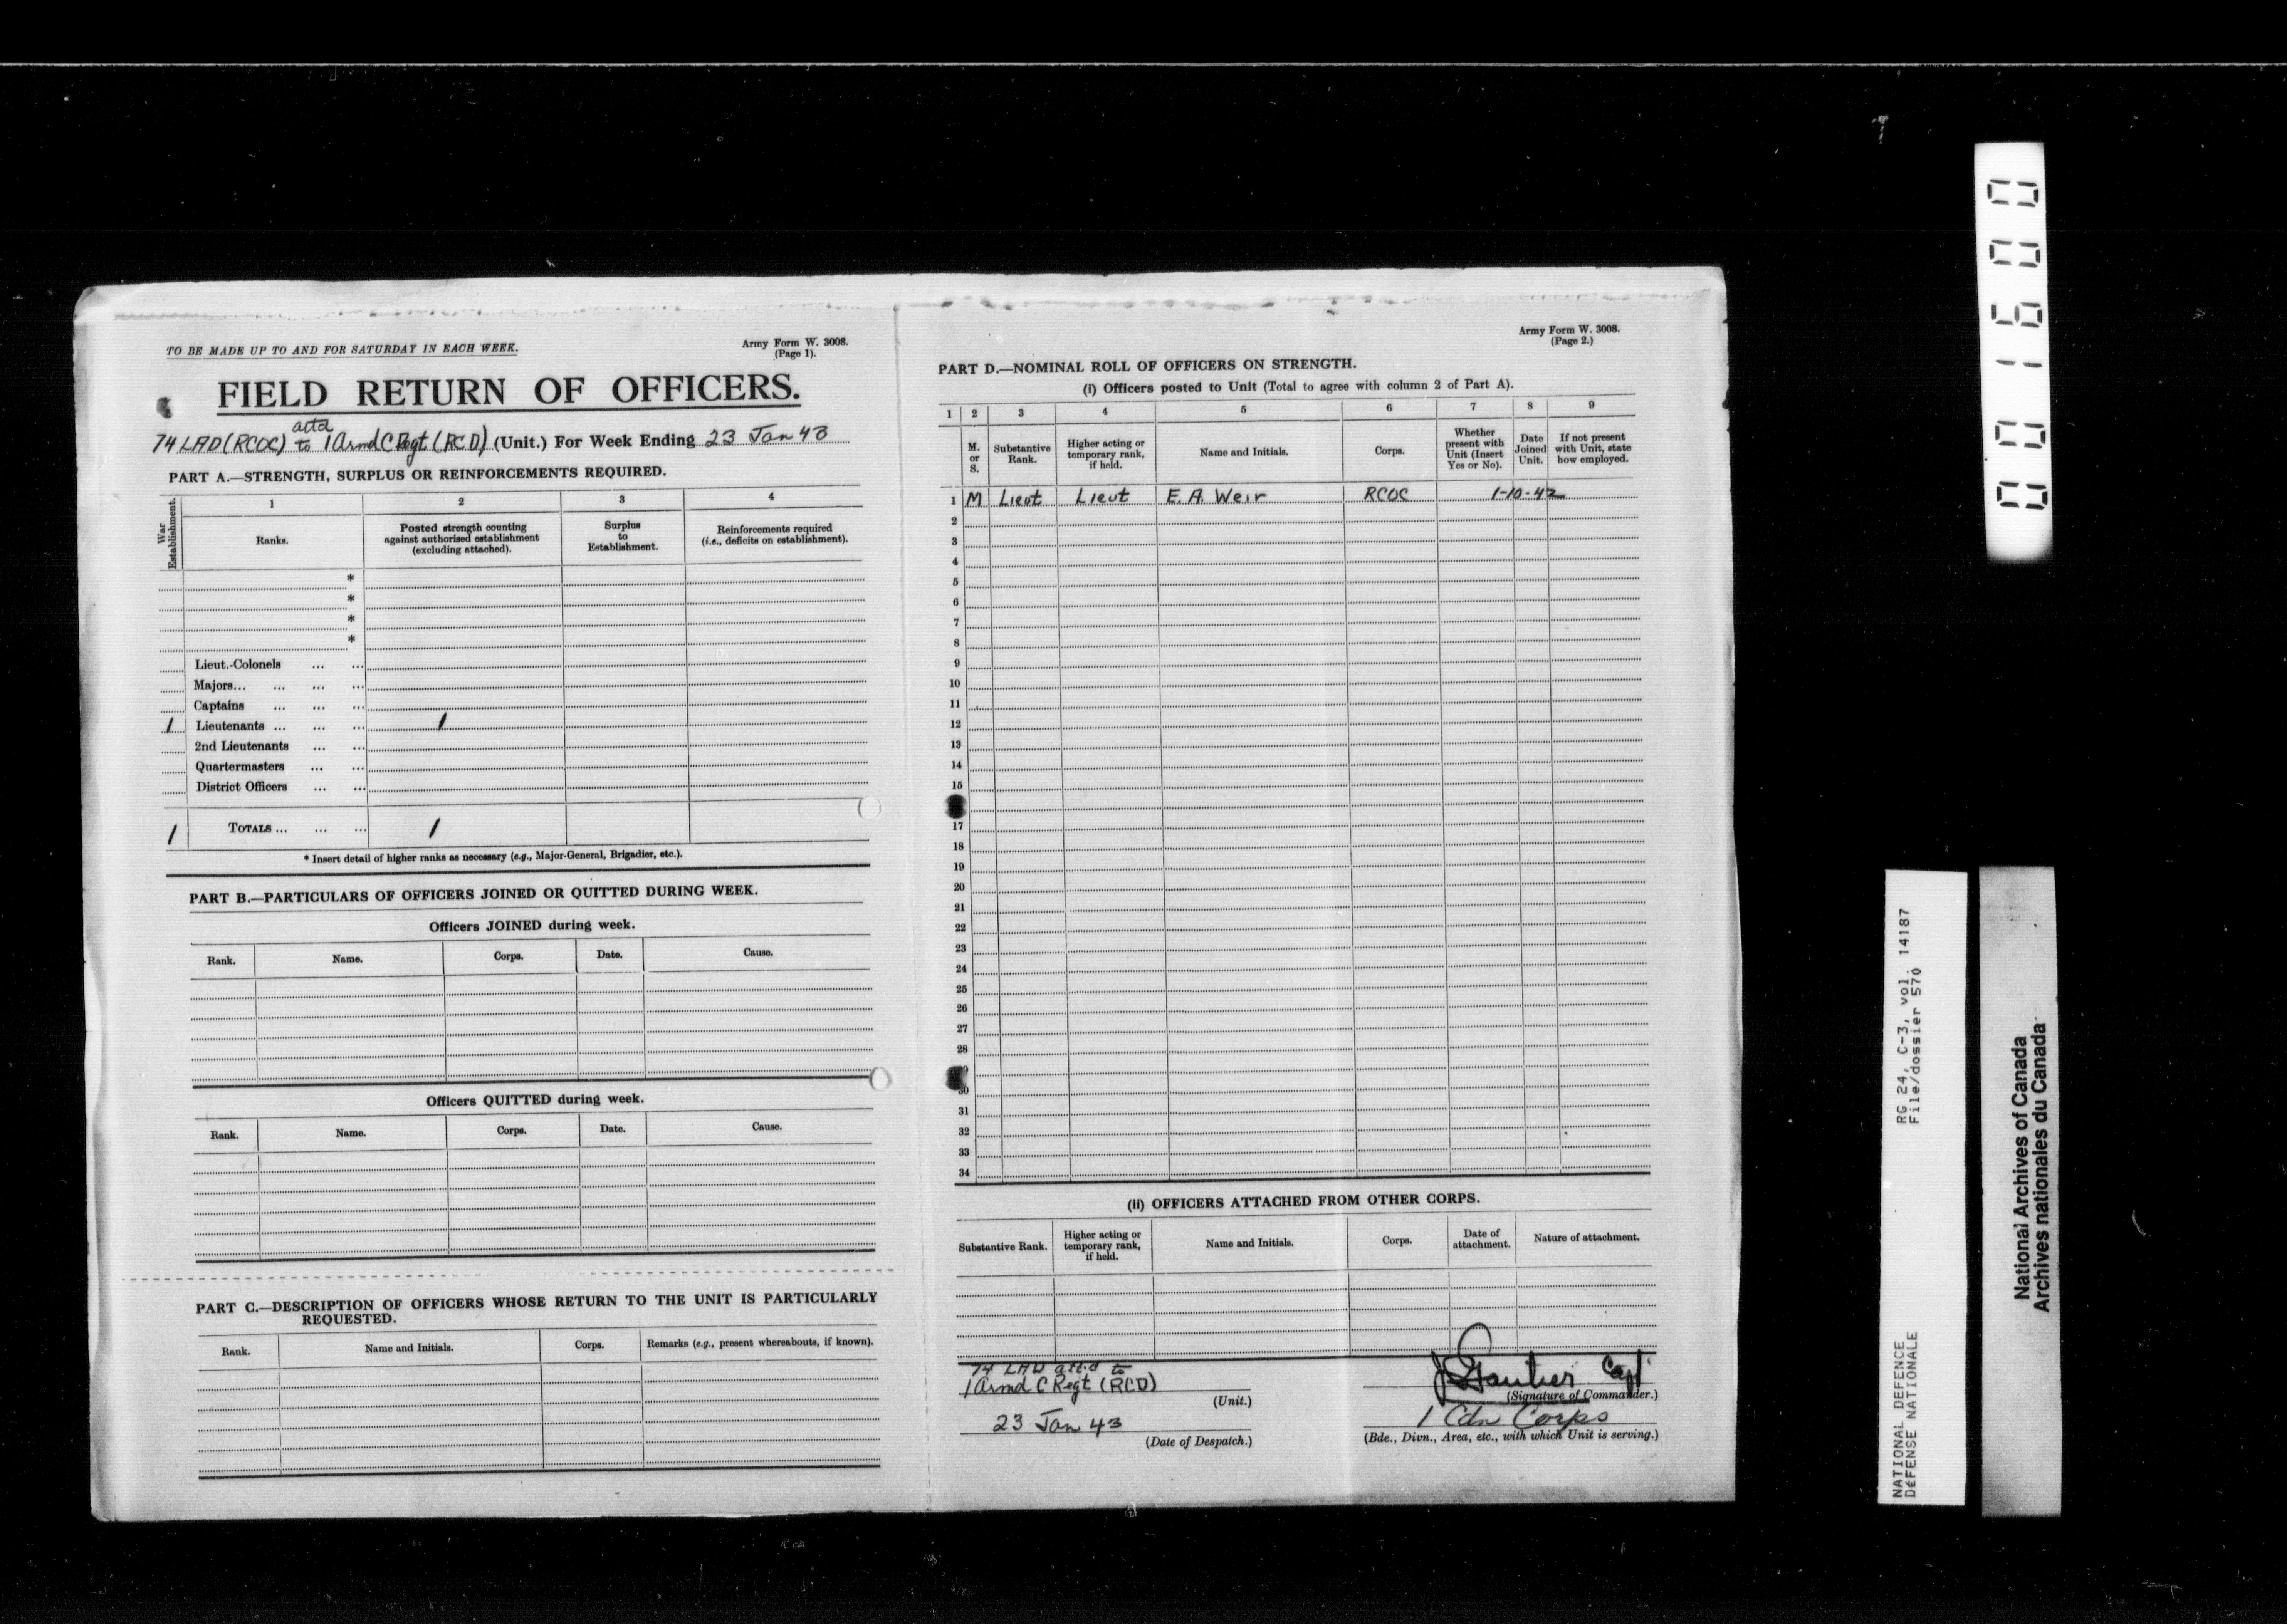 TO BE MADE UP TO AND FOR SATURDAY IN EACH WEEK.
Army Form W. 3008.
(Page 1).
FIELD RETURN OF OFFICERS.
attd
74 LAD (RCOC) to 1 Armd C Regt (RCD) (Unit.) For Week Ending 23 Jan 43
PART A.—STRENGTH, SURPLUS OR REINFORCEMENTS REQUIRED.
War Establishment.
1 2 3 4
Ranks.
Posted strength counting against authorised establishment (excluding attached).
Surplus to Establishment.
Reinforcements required (i.e., deficits on establishment).
*
*
*
*
Lieut.-Colonels ... ...
Majors... ... ... ...
Captains ... ... ...
1 Lieutenants ... ... ... 1
2nd Lieutenants ... ...
Quartermasters ... ...
District Officers ... ...
1 TOTALS ... ... ... 1
* Insert detail of higher ranks as necessary (e.g., Major-General, Brigadier, etc.).
PART B.—PARTICULARS OF OFFICERS JOINED OR QUITTED DURING WEEK.
Officers JOINED during week.
Rank. Name. Corps. Date. Cause.
Officers QUITTED during week.
Rank. Name. Corps. Date. Cause.
PART C.—DESCRIPTION OF OFFICERS WHOSE RETURN TO THE UNIT IS PARTICULARLY
REQUESTED.
Rank. Name and Initials. Corps. Remarks (e.g., present whereabouts, if known).
Army Form W. 3008.
(Page 2.)
PART D.—NOMINAL ROLL OF OFFICERS ON STRENGTH.
(i) Officers posted to Unit (Total to agree with column 2 of Part A).
1 2 3 4 5 6 7 8 9
M. or S.
Substantive Rank.
Higher acting or temporary rank, if held.
Name and Initials.
Corps.
Whether present with Unit (Insert Yes or No).
Date Joined Unit.
If not present with Unit, state how employed.
1 M Lieut Lieut E. A. Weir RCOC 1-10-42
2
3
4
5
6
7
8
9
10
11
12
13
14
15
17
18
19
20
21
22
23
24
25
26
27
28
30
31
32
33
34
(ii) OFFICERS ATTACHED FROM OTHER CORPS.
Substantive Rank.
Higher acting or temporary rank, if held.
Name and Initials.
Corps.
Date of attachment.
Nature of attachment.
74 LAD att.d to
1 Armd C Regt (RCD)
(Unit.)
23 Jan 43
(Date of Despatch.)
Capt
(Signature of Commander.)
1 Cdn Corps
(Bde., Divn., Area, etc., with which Unit is serving.)
001600
NATIONAL DEFENCE RG 24, C-3, vol. 14187
DÉFENSE NATIONALE File/dossier 570
National Archives of Canada
Archives nationales du Canada